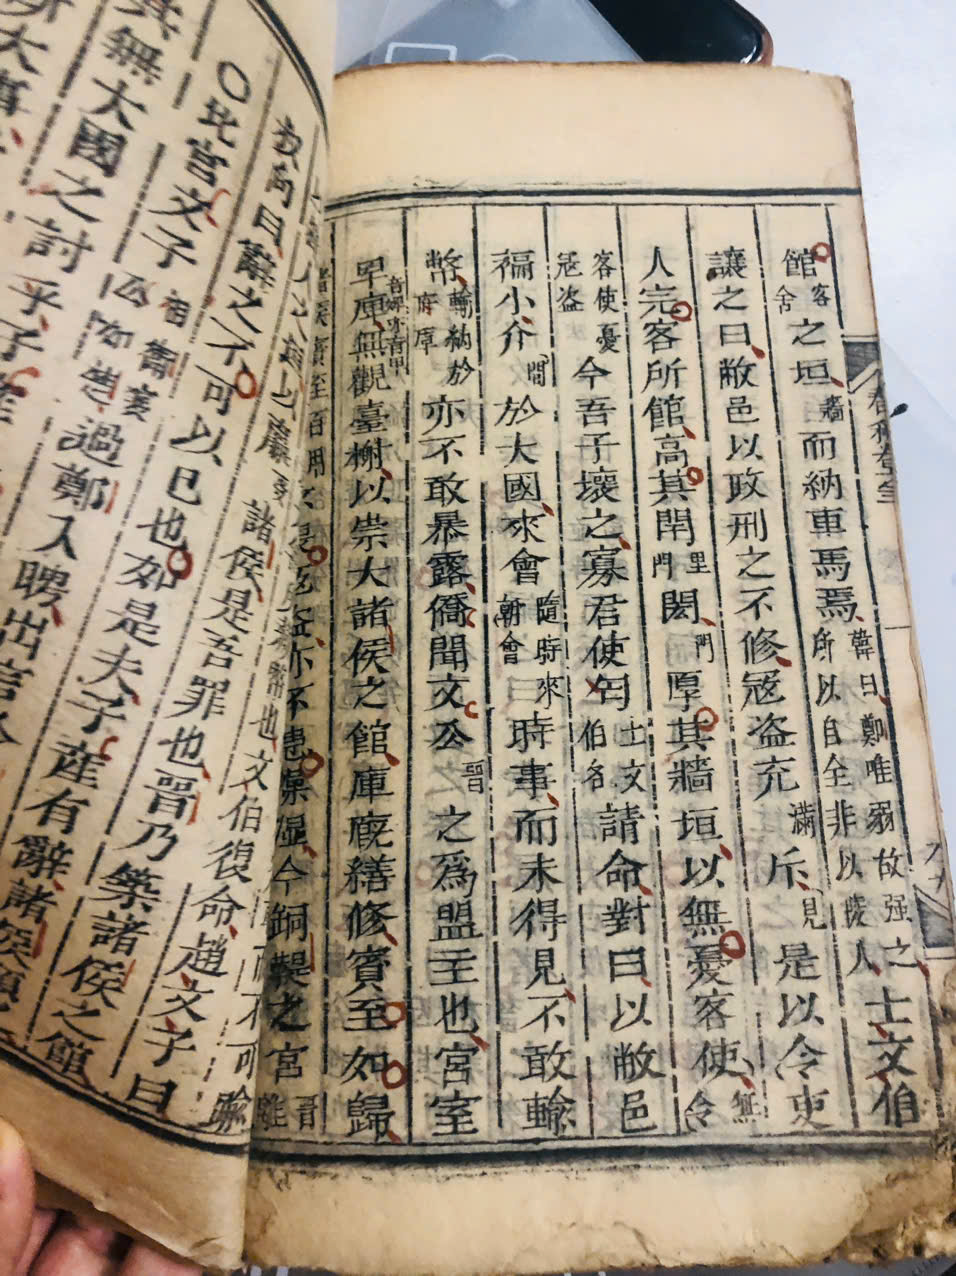 館客舍之垣牆而納車馬焉韓曰鄭唯弱故强之所以自全非以陵人士文伯
讓之曰敝邑以政刑之不修寇盗充滿斥見是以令吏
人完客所館高其閈里門閎門厚其牆垣以無憂客使無令
客使憂寇盗今吾子壞之寡君使匄士文伯名請命對曰以敝邑
褊小介間於大國來會隨時來朝會時事而未得見不敢輸
幣輸納於府庫亦不敢暴露僑聞文公晉之爲盟主也宮室
卑庳無觀臺榭以崇大諸侯之館庫廐繕修賓至如歸
亦不患燥濕今銅鞮之宮晉離
不可踰
也文伯復命趙文子曰
諸侯是吾罪也晉乃築諸侯之館
叔向曰辭之不可以已也如是夫子産有辭諸侯賴
〇北宮文子相衞襄公如楚過鄭入聘出言
其無大國之討乎子産